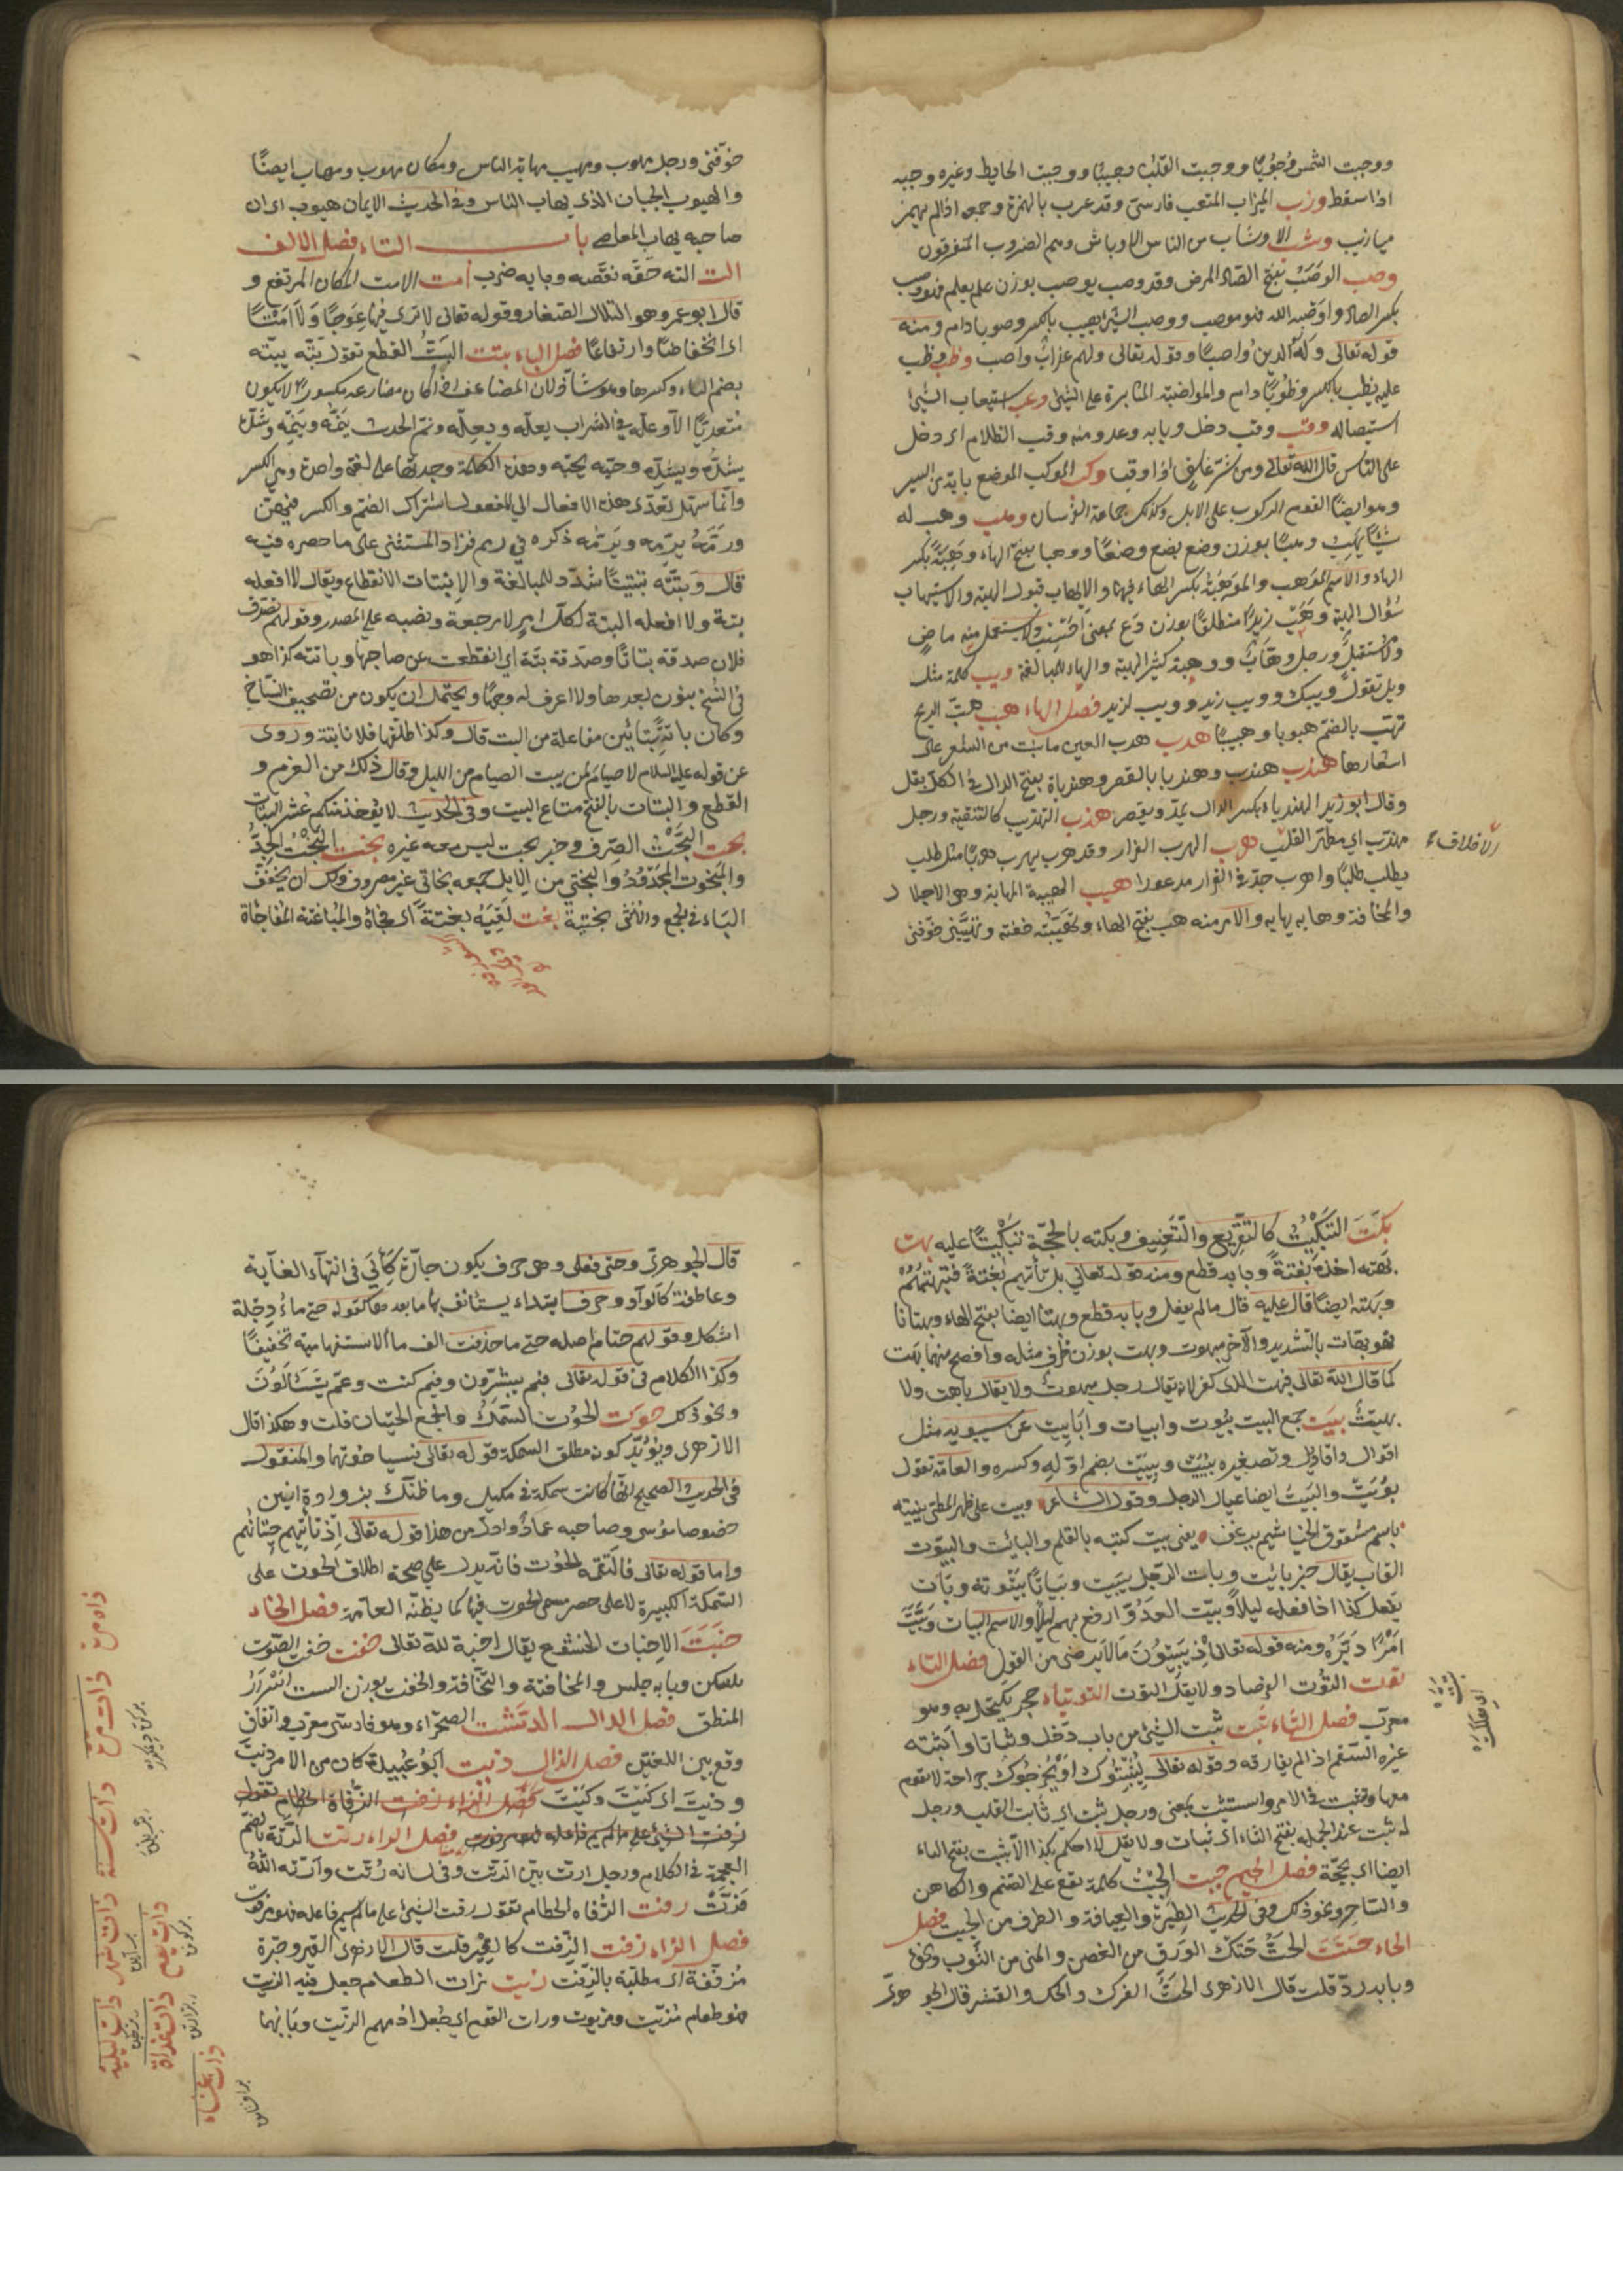 ووجبت الشمس وُجُوبًا ووجبت القلب وجيبًا ووجبت الحايط وغيره وجبه
اذا سقط وزب الميزاب المتعب فارسي وقد عرب بالهمزة وجمعه اذا لم يهمز
ميازيب وشب الاوشاب من الناس الاوباش وهم الضروب المتفرقون
وصب الوَصَبُ بفتح الصاد المرض وقد وصب يوصب بوزن علم يعلم فهو وصب
بكسر الصاد واوصبه الله فهو موصب ووصب الشئ يصيب بالكسر وصوبا دام ومنه
قوله تعالى وَلَهُ الدين واصبًا وقوله تعالى ولهم عذابٌ واصب وظب وظب
عليه يظب بالكسر وظوبًا دام والمواظبة المثابرة على الشئ وعب استيعاب الشئ
استيصاله وقب وقب دخل وبابه وعد ومنه وقب الظلام اى دخل
على الناس قال الله تعالى ومن شرّ غاسق اذا وقب وكب الموكب الموضع بابة من السير
وهو ايضًا القوم الركوب على الابل وكذلك جماعة الفرسان وهب وهب له
شيئًا يهب وهبًا بوزن وضع يضع وضعًا ووهبا بفتح الهاء وَهِبَةً بكسر
الهاء والاسم الموهب والموهبة بكسر الهاء فيهما والاتهاب قبول الهبة والاستيهاب
سُؤال الهبة وهَبْ زيدًا منطلقًا بوزن دَع بمعنى احْسِب ولا يستعمل منه ماضٍ
ولا مُستقبل ورجل وهّابٌ ووهّابة كثير الهبة والهاء للمبالغة ويب كلمة مثل
ويل تقول ويبك وويب زيد وويب لزيد فصل الهاء هبب هبّت الريح
تهب بالضم هبوبا وهبيبًا هدب هدب العين ما نبت من الشعر على
اشفارها هندب هندب وهندبا بالقصر وهندباة بفتح الدال في الكل بقل
وقال ابو زيد الهندباء بكسر الدال يمدّ ويقصر هذب التهذيب كالتنقية ورجل
مهذب اي مطهر القلب هرب الهرب الفرار وقد هرب يهرب هربًا مثل طلب
يطلب طلبًا واهرب جدّ في الفرار مدعورا هيب الهيبة المهابة وهي الاجلال
والمخافة وهابه يهابه والامر منه هب بفتح الهاء وتهيّبته خفته وتهيّبني خوّفني
الاخلاق
خوّفني ورجل مهوب ومهيب مهابه الناس ومكان مهوب ومهاب ايضًا
والهيوب الجبان الذى يهاب الناس وفي الحديث الايمان هيوب اى ان
صاحبه يهاب المعاصي باب التاء فصل الالف
الت التهُ حَقَّه نقّصه وبابه ضرب أمت الامت المكان المرتفع و
قال ابو عمرو هو التلال الصغار وقوله تعالى لا ترى فيها عِوَجًا وَلَا أمْتًا
اى انخفاضًا وارتفاعًا فصل الباء بتت البَتُّ القطع تقول بَتّه يبتّه
بضم الباء وكسرها وهو شاذ لان المضاعف اذا كان مضارعه مكسورًا لا يكون
مُتعديًا الا وعلّه في الشراب يعلّه ويعِلّه ونمّ الحديث ينُمّه وينِمّه وشدّه
يشُدّه ويشِدّه وحبّه يحبّه وهذه الكلمة وجدتها على لغة واحدة وهي الكسر
وانّما سهّل تعدّى هذه الافعال الى المفعول اشتراك الضم والكسر فيهنّ
ورَمَّهُ يرُمّه ويَرِمّه ذكره في رمم فزاد المستثنى على ما حصره فيه
قال وَبتّته تبتيتًا شُدّد للمبالغة والانبتات الانقطاع ويقال لا افعله
بتة ولا افعله البتة لكل امر لا رجعة ونصبه على المصدر وقولهم تصدّق
فلان صدقة بتاتًا وصدقة بتّة اي انقطعت عن صاحبها وباتته كذا هو
في النسخ بنون بعدها ولا اعرف له وجهًا ويحتمل ان يكون من تصحيف النسّاخ
وكان باتته بتائين مفاعلة من البت قال وكذا طلّقها فلانا بتة وروى
عن قوله عليه السلام لا صيام لمن يبت الصيام من الليل وقال ذلك من العزم و
القطع والبتات بالفتح متاع البيت وفي الحديث لا يؤخذ منكم عشر البتات
بحت البَحْتُ الصِّرف وخبز بحت ليس معه غيره بخت البَخْتُ الجدّ
والمبخوت المجدود والبختي من الابل جمعه بخاتي غير مصروف ولك ان تخفف
الياء في الجمع والانثى بختيّة بغت لَقِيَهُ بَغتةً اى فجأة والمباغتة المفاجاة
بكَّت التبكيتُ كالتقريع والتعنيف وبكته بالحجّة تبكيتًا عليه بهت
بهته اخذه بَغْتةً وبابه قطع ومنه قوله تعالى بل تأتيهم بَغْتةً فَتبْهتهُمْ
وبهته ايضًا قال عليه قال ما لم يفعل وبابه قطع وبهتا ايضا بفتح الهاء وبهتانا
فهو بهّات بالتشديد والآخر مبهوت وبهت بوزن ظرف مثله وافصح منهما بُهِت
كما قال الله تعالى فبهت الذى كفر لانه يقال رجل مبهوت ولا يقال باهت ولا
بهيت بيت جمع البيت بُيُوت وابيات وابَابيت عن سيبويه مثل
اقوال واقاويل وتصغيره بُيَيْت وبِيَيت بضم اوّله وكسره والعامة تقول
بُوَيْت والبَيتُ ايضا عيال الرجل وقول الشاعر وبيت على ظهر المطى بنيته
باسم مشقوق الخياشيم يرعف يعنى بيت كتبه بالقلم والبائت والبيّوت
الغاب يقال خبز بائت وبات الرّجل يبيت وبيبات بَيْتُوتة وبات
يفعل كذا اذا فعله ليلا وبيّت العدوّ اوقع بهم ليلًا والاسم البيات وبَيَّتَ
امْرًا دَبّره ومنه قوله تعالى اِذْ يُبَيِّتُونَ مَا لا يَرضى من القول فصل التاء
توت التُّوت الفرصاد ولا يقل التوث التوتياء حجر يكتحل به وهو
معرّب فصل الثاء ثبت ثبت الشئ من باب دَخل وثباتا واثبته
غيره السقم اذا لم يفارقه وقوله تعالى لِيُثْبِتُوكَ اَوْ يُخْرِجُوك جراحة لا تقوم
معها وتثبت في الامر واستثبت بمعنى ورجل ثبت اى ثابت القلب ورجل
له ثبت عند الحملة بفتح الثاء اى ثبات ولا يقل لا احكم بكذا الا بثبت بفتح الباء
ايضا اى بحجّة فصل الجيم جبت الجِبْتُ كلمة تقع على الصنم والكاهن
والساحر ونحو ذلك وفي الحديث الطيرة والعيافة والطرق من الجبت فصل
الحاء حتَتَ الحَتُّ حتك الورق من الغصن والمنى من الثوب ونحوه
وبابه ردّ قلت قال الازهرى الحَتُّ الفرك والحك والقشر قال الجوهرى
قال الجوهرى وحتى فعلى وهى حرف يكون جارّة كَإلى فى انتهاء الغاية
وعاطفة كالواو وحرف ابتداء يستأنف بها ما بعدها كقوله حتى ماءُ دِجْلة
اشكل وقولهم حتام اصله حتى ما حذفت الف ما الاستفهامية تخفيفًا
وكذا الكلام فى قوله تعالى فبم تبشّرون وفيم كنت وعمّ يَتَسَاءَلُونَ
ونحو ذلك حوت الحُوت السَّمَكُ والجمع الحيتان قلت وهكذا قال
الازهرى ويؤيّد كونه مطلق السمكة قوله تعالى نسيا حوتهما والمنقول
فى الحديث الصحيح انّها كانت سمكة في مكتل وما ظنّك بزوادة اثنين
خصوصا موسى وصاحبه عمادٌ وادلّ من هذا قوله تعالى اِذ تأتيهم حيتانهم
واما قوله تعالى فالتقمه الحُوت فانّه يدل على صحة اطلاق الحوت على
السّمكة الكبيرة لا على حصر مسمى الحوت فيها كما يظنّه العامّة فصل الخاء
خبَتَ الاِخبات الخشوع يقال اخبت لله تعالى خفت خفت الصّوت
سكن وبابه جلس والمخافتة والتخافت والخفت بوزن السبت اِسْرَارُ
المنطق فصل الدال الدَشت الصحراء وهو فارسى معرب واتفاق
وقع بين اللغتين فصل الذال ذيت ابُو عُبيدة كان من الامر ذيتَ
وذيت اى كَيْتَ وكَيْتَ فصل الزاء زفت الرُّفاة الحطام تقول
فصل الراء رتت الرتّة بالضم
العجمة فى الكلام ورجل ارتّ بيّن الرتت وفى لسانه رُتّت وأرتّه اللهُ
فرَتَّ رفت الرُّفاة الحطام تقول رفت الشئ على ما لم يسم فاعله فهو مرفوت
فصل الزاء زفت الزِّفت كالقير قلت قال الازهرى القير وجَرّة
مُزفّتة اى مطلية بالزِّفت زيت زات الطعام جعل فيه الزيت
فهو طعام مَزيت ومزيوت وزات القوم اى جعل ادمهم الزّيت وبابهما
ذات سنة
ذات ليلة
ذات غداة